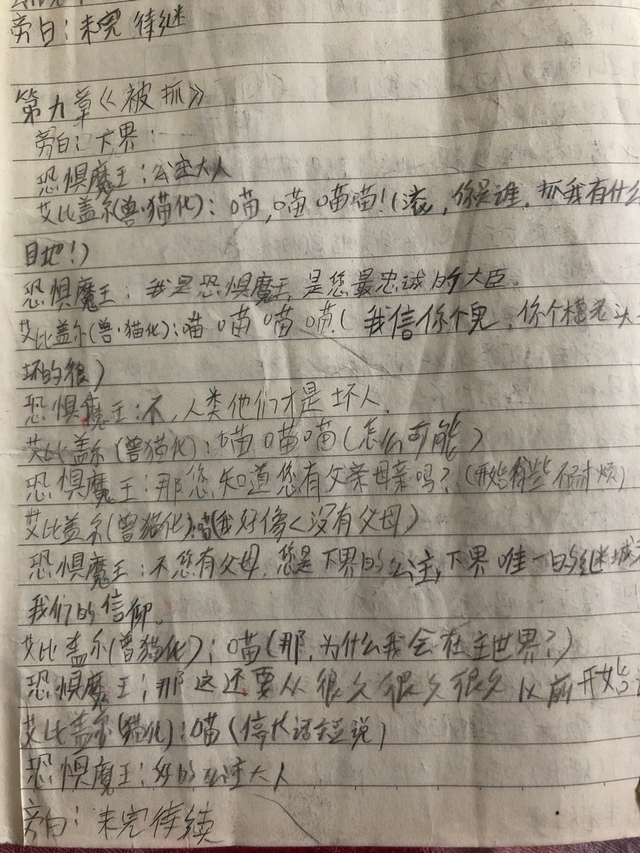 旁白：未完待继
第九章《被抓》
旁白：下界：
恐惧魔王：公主大人
艾比盖尔(兽·猫化)：喵，喵喵喵！(滚，你是谁，抓我有什么
目地！)
恐惧魔王：我是恐惧魔王，是您最忠诚的大臣。
艾比盖尔(兽·猫化)：喵喵喵喵！(我信你个鬼，你个糟老头
坏的很)
恐惧魔王：不，人类他们才是坏人。
艾比盖尔(兽猫化)：喵喵喵(怎么可能)
恐惧魔王：那您知道您有父亲母亲吗？(开始有些不耐烦)
艾比盖尔(兽猫化)：喵(我好像<没有父母)
恐惧魔王：不您有父母，您是下界的公主，下界唯一的继
我们的信仰。
艾比盖尔(兽猫化)：喵(那，为什么我会在主世界？)
恐惧魔王：那这还要从很久很久很久以前开始
艾比盖尔(猫化)：喵(停长话短说)
恐惧魔王：好的公主大人
旁白：未完待续